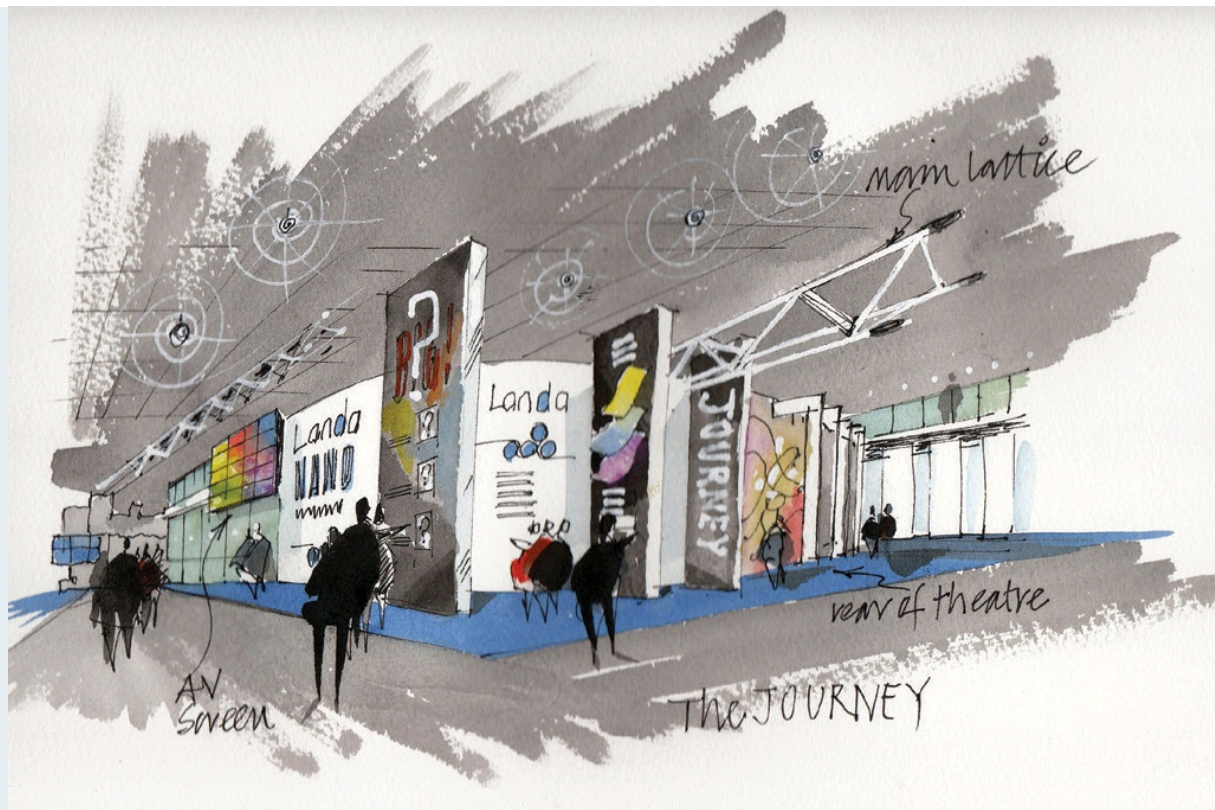 main lattice
Landa
NANO
BIG!
?
?
?!
?
Landa
JOURNEY
rear of theatre
AV
Screen
The JOURNEY